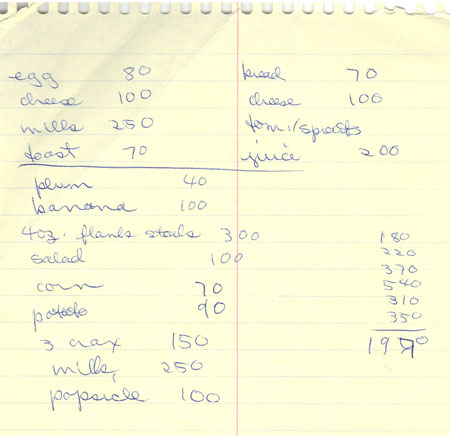 egg 80
cheese 100
milk 250
toast 70
plum 40
banana 100
4oz. flank steak 300
salad 100
corn 70
potato 90
3 crax 150
milk, 250
popsicle 100
bread 70
cheese 100
tom,/sprouts
juice 200
180
220
370
540
310
350
1970